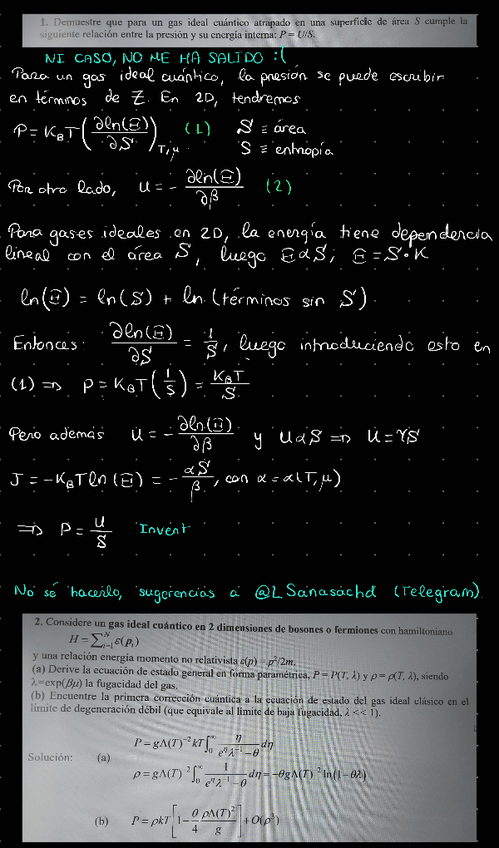 1. Demuestre que para un gas ideal cuántico atrapado en una superficie de área S cumple la
siguiente relación entre la presión y su energía interna: P = U/S.
NI CASO, NO ME HA SALIDO :(
Para un gas ideal cuántico, la presión se puede escribir
en términos de Z. En 2D, tendremos
P = K_B T (∂ln(Ξ)/∂S)_{T,μ} (1) S ≡ área
S ≡ entropía
Por otro lado, U = - ∂ln(Ξ)/∂β (2)
Para gases ideales en 2D, la energía tiene dependencia
lineal con el área S, luego Ξ α S; Ξ = S · K
ln(Ξ) = ln(S) + ln (términos sin S)
Entonces: ∂ln(Ξ)/∂S = 1/S, luego introduciendo esto en
(1) ⇒ P = K_B T (1/S) = K_B T/S
Pero además U = - ∂ln(Ξ)/∂β y U α S ⇒ U = γS
J = -K_B T ln(Ξ) = - αS/β, con α = α(T, μ)
⇒ P = U/S Invent
No sé hacerlo, sugerencias a @LSanasachd (Telegram)
2. Considere un gas ideal cuántico en 2 dimensiones de bosones o fermiones con hamiltoniano
H = ∑_{i=1}^N ε(p_i)
y una relación energía momento no relativista ε(p) = p²/2m.
(a) Derive la ecuación de estado general en forma paramétrica, P = P(T, λ) y ρ = ρ(T, λ), siendo
λ=exp(βμ) la fugacidad del gas.
(b) Encuentre la primera corrección cuántica a la ecuación de estado del gas ideal clásico en el
límite de degeneración débil (que equivale al límite de baja fugacidad, λ << 1).
Solución: (a) P = gΛ(T)^{-2} kT ∫_0^∞ η/(e^η λ^{-1} - θ) dη
ρ = gΛ(T)^{-2} ∫_0^∞ 1/(e^η λ^{-1} - θ) dη = -θgΛ(T)^{-2} ln(1-θλ)
(b) P = ρkT [1 - θ/4 ρΛ(T)²/g] + O(ρ³)